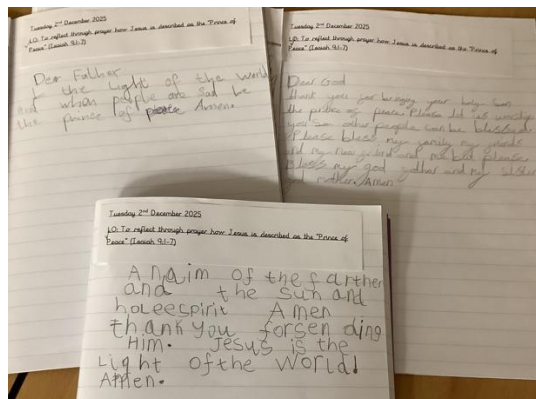 Tuesday 2nd December 2025
LO: To reflect through prayer how Jesus is described as the "Prince of
Peace" (Isaiah 9:1-7)
Dear Father
the Light of the world
and when people are sad be
the prince of Amen.
Tuesday 2nd December 2025
LO: To reflect through prayer how Jesus is described as the "Prince of
Peace" (Isaiah 9:1-7)
Dear God
thank you for bringing your holy son
the prince of peace. Please let us worship
you so other people can be blessed.
Please bless my family my
and my and please
bless my god father and my sister
god mother. Amen
Tuesday 2nd December 2025
LO: To reflect through prayer how Jesus is described as the "Prince of
Peace" (Isaiah 9:1-7)
A naim of the farther
and the sun and
holeespirit Amen
thank you forsen ding
Him. Jesus is the
Light of the World
Amen.